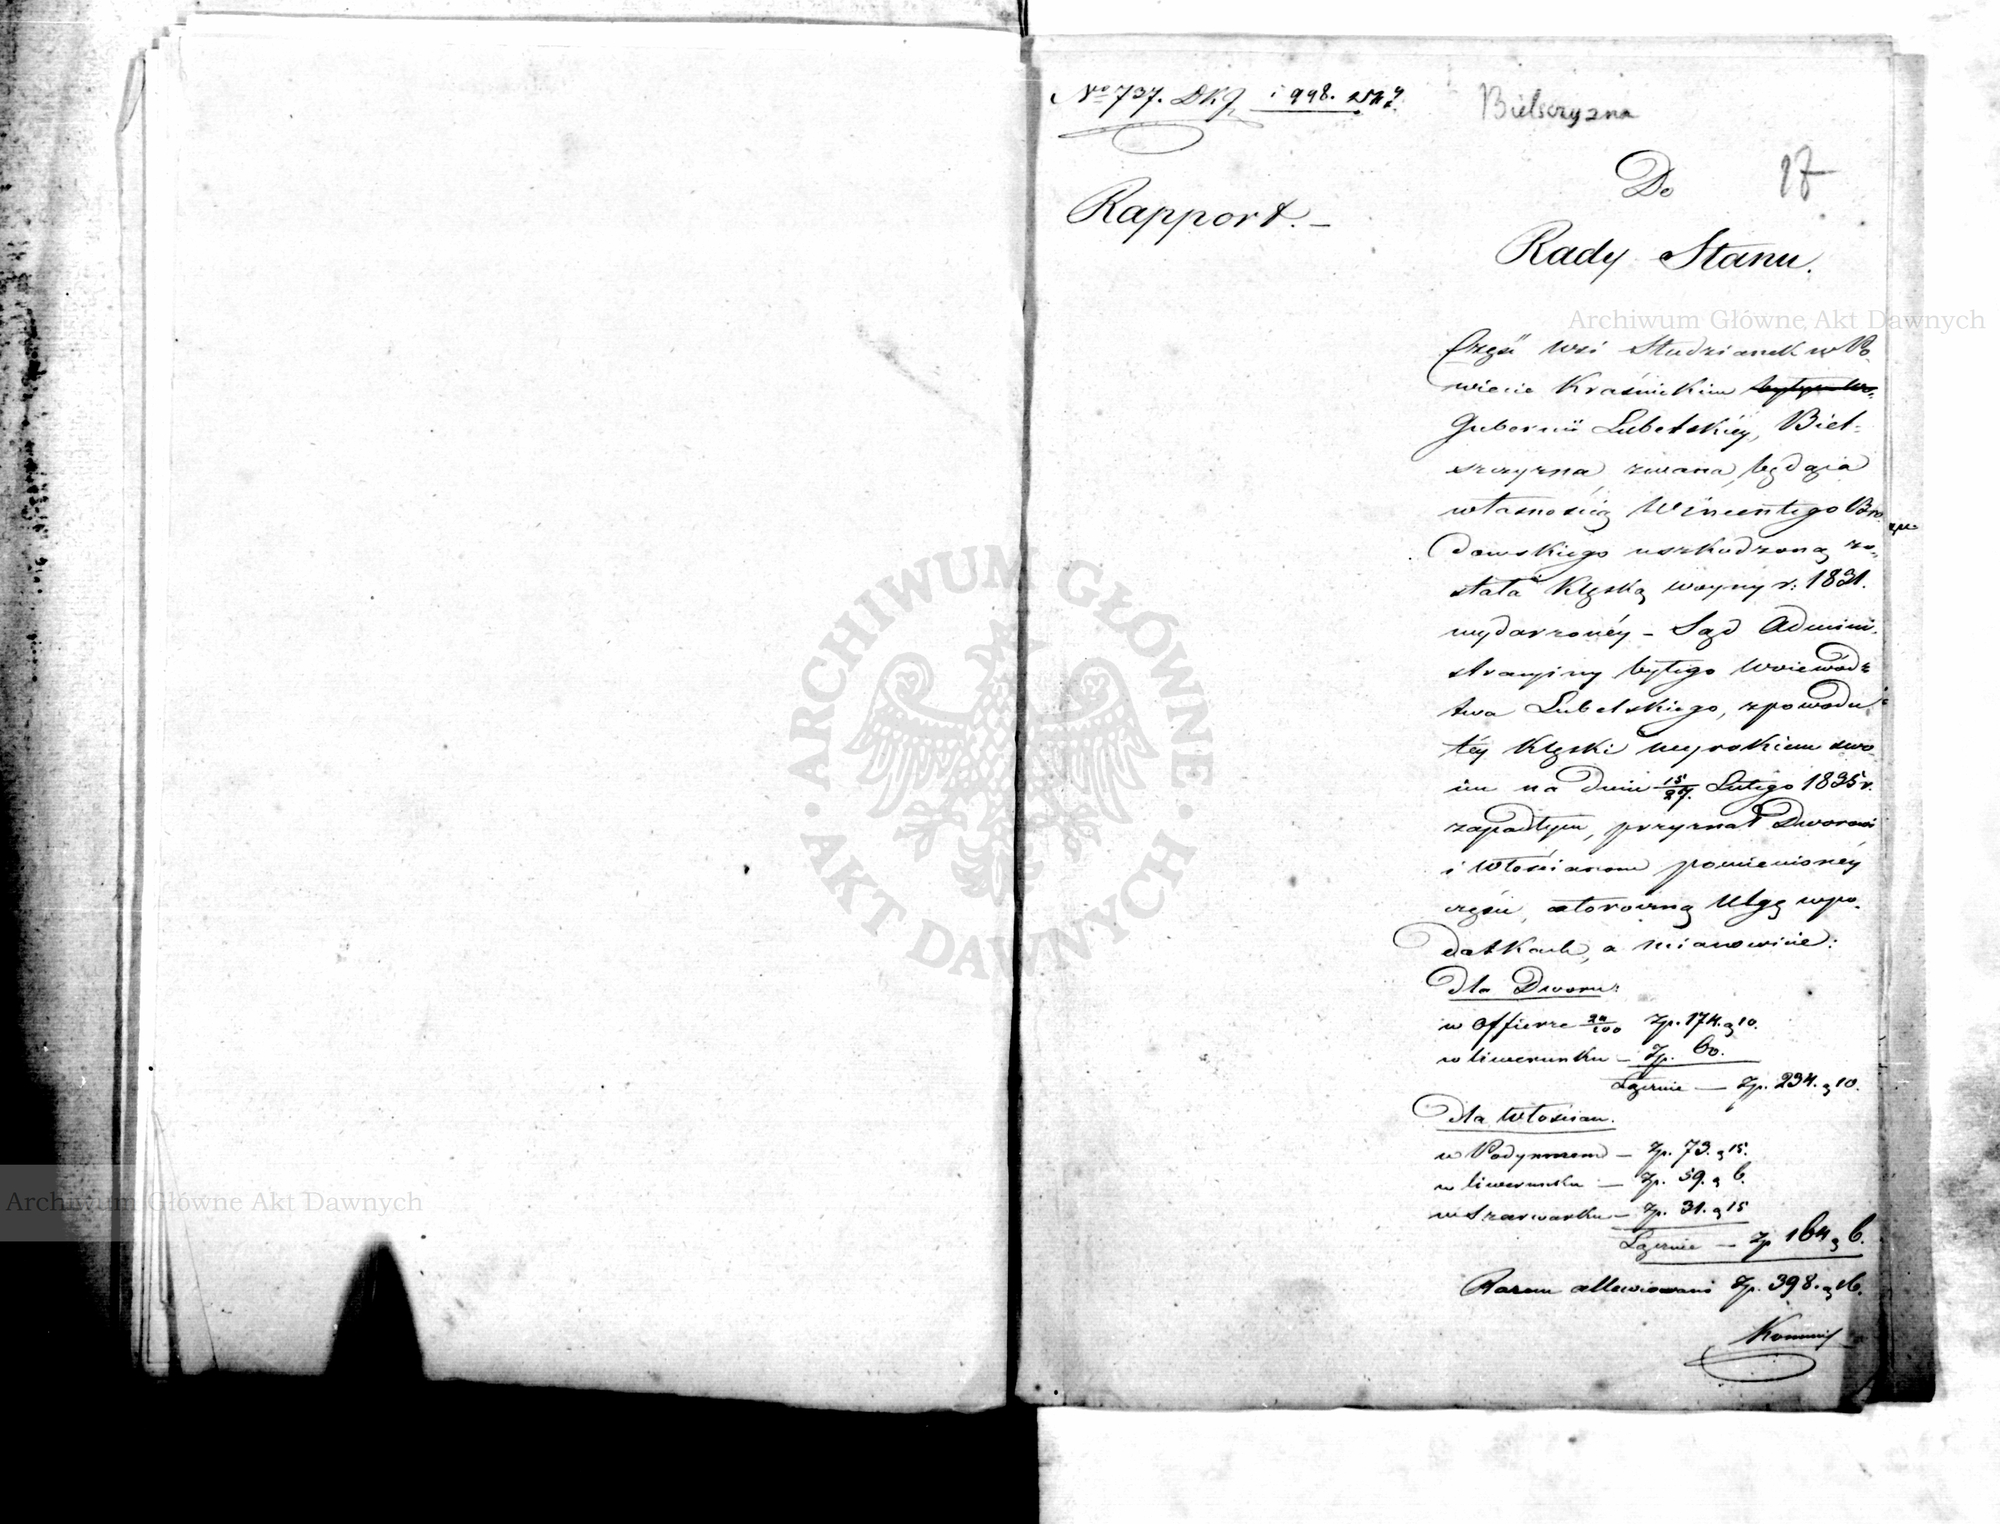 No 737. DKJ i 998.
Bielszczyzna
Do
17
Rapport. –
Rady Stanu.
Część wsi Studzianek w Po
wiecie Kraśnickim
Gubernii Lubelskiéy, Biel-
szczyzna zwana, będąca
własnością Wincentego Bro
dowskiego uszkodzoną zo-
stała klęską woyny r: 1831.
wydarzonéy – Sąd Admini-
stracyiny byłego Woiewódz
twa Lubelskiego, zpowodu
téy klęski wyrokiem swo
im na dniu 15/27. Lutego 1835 r.
zapadłym, przyznał Dworowi
i Włościanom pomienionéy
części, ulgę wpo-
datkach, a mianowicie:
dla Dworu:
w offierze 24/100 Zp. 174. g 10.
w liwerunku – Zp. 60.
Łącznie — Zp. 234. g 10.
dla Włościan.
w Podymnem – Zp. 73. g 15.
w liwerunku — Zp. 59. g 6.
w Szarwarku – Zp. 31. g 15
Łącznie — Zp 164 g 6.
Razem allewiowano Zp. 398. g 16.
Archiwum Główne Akt Dawnych
ARCHIWUM GŁÓWNE · AKT DAWNYCH ·
Archiwum Główne Akt Dawnych